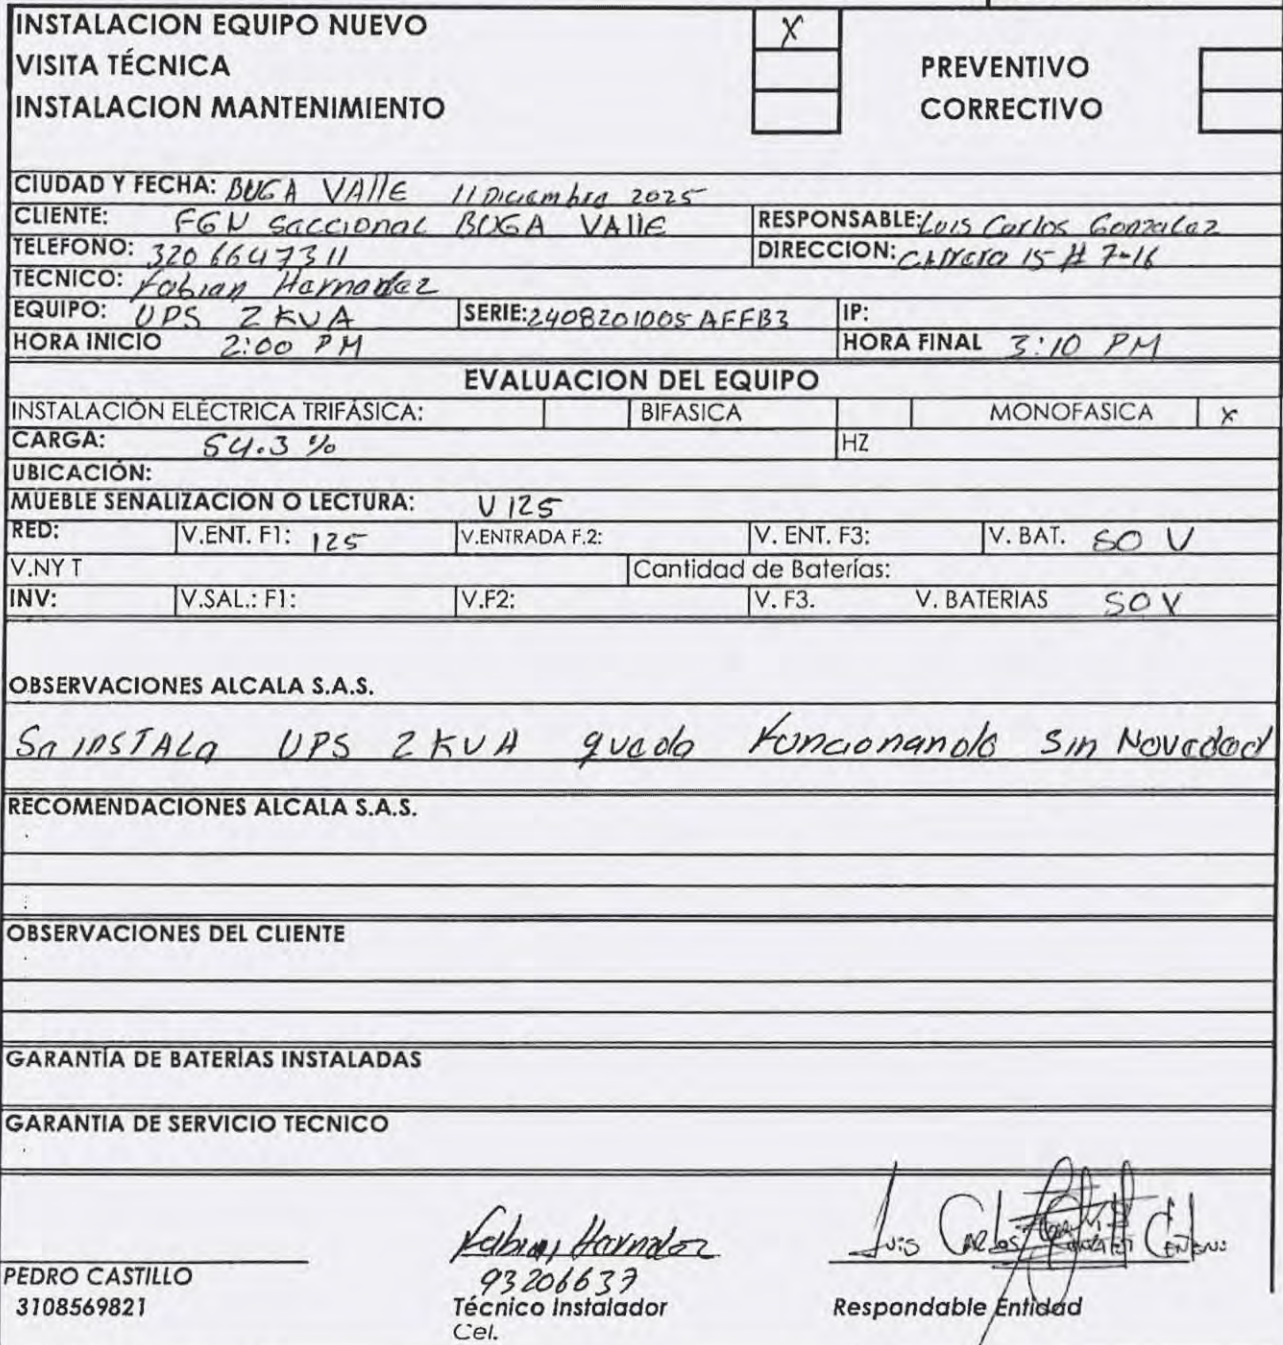 INSTALACION EQUIPO NUEVO X
VISITA TÉCNICA PREVENTIVO
INSTALACION MANTENIMIENTO CORRECTIVO
CIUDAD Y FECHA: BUGA VAllE 11 Diciembre 2025
CLIENTE: FGN Seccional BUGA VAllE RESPONSABLE: Luis Carlos Gonzalez
TELEFONO: 320 6647311 DIRECCION: CArrera 15 # 7-16
TECNICO: Fabian Hernandez
EQUIPO: UPS 2 KVA SERIE: 2408201005 AFFB3 IP:
HORA INICIO 2:00 PM HORA FINAL 3:10 PM
EVALUACION DEL EQUIPO
INSTALACIÓN ELÉCTRICA TRIFÁSICA: BIFASICA MONOFASICA X
CARGA: 54.3 % HZ
UBICACIÓN:
MUEBLE SENALIZACION O LECTURA: V 125
RED: V.ENT. F1: 125 V.ENTRADA F.2: V. ENT. F3: V. BAT. 50 V
V.NY T Cantidad de Baterías:
INV: V.SAL.: F1: V.F2: V. F3. V. BATERIAS 50 V
OBSERVACIONES ALCALA S.A.S.
Se INSTALA UPS 2 KVA queda Funcionando Sin Novedad
RECOMENDACIONES ALCALA S.A.S.
OBSERVACIONES DEL CLIENTE
GARANTÍA DE BATERÍAS INSTALADAS
GARANTIA DE SERVICIO TECNICO
Fabian Hernandez Luis Carlos Gonzalez Centeno
PEDRO CASTILLO 93206637
3108569821 Técnico Instalador Respondable Entidad
Cel.